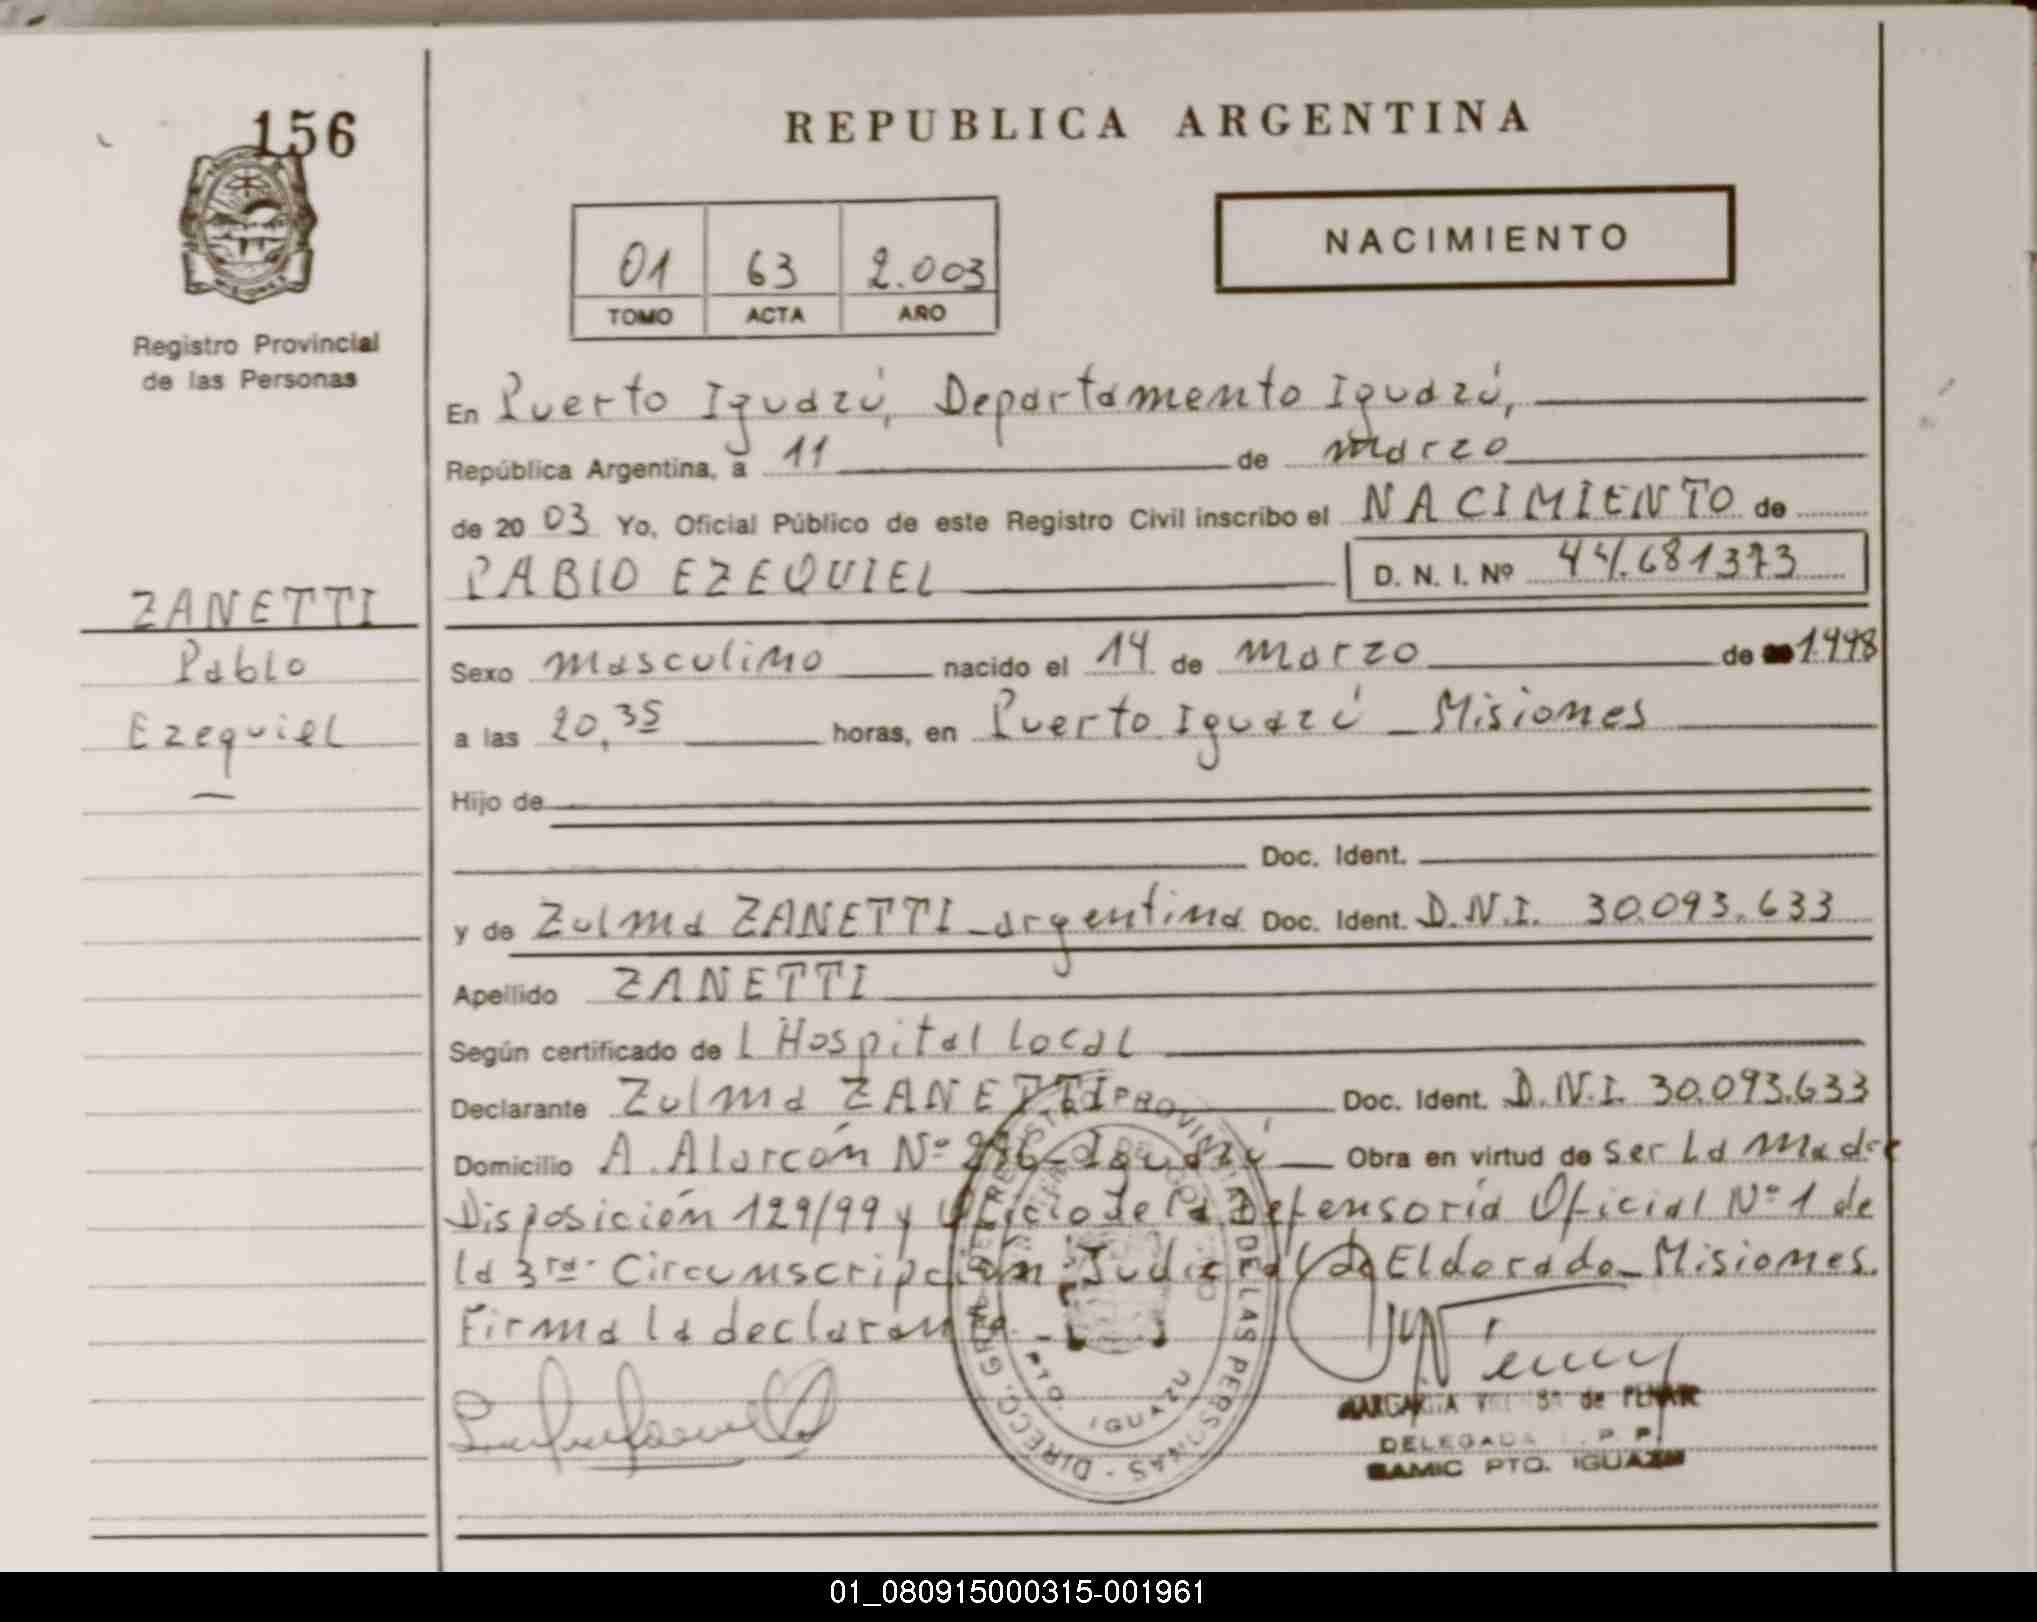 156
REPUBLICA ARGENTINA
NACIMIENTO
01 63 2.003
TOMO ACTA AÑO
Registro Provincial
de las Personas
En Puerto Iguazú, Departamento Iguazú,
República Argentina, a 11 de marzo
de 2003 Yo, Oficial Público de este Registro Civil inscribo el NACIMIENTO de
PABLO EZEQUIEL D. N. I. Nº 44.681373
ZANETTI
Pablo
Ezequiel
Sexo masculino nacido el 14 de marzo de 1998
a las 20,35 horas, en Puerto Iguazú _ Misiones
Hijo de
Doc. Ident.
y de Zulma ZANETTI _ argentina Doc. Ident. D.N.I. 30.093.633
Apellido ZANETTI
Según certificado de L Hospital Local
Declarante Zulma ZANETTI Doc. Ident. D.N.I. 30.093.633
Domicilio A. Alarcón Nº Iguazú Obra en virtud de ser La madre
Disposición 129/99 y Oficio de la Defensoría Oficial Nº 1 de
la 3ra. Circunscripción Judicial de Eldorado _ Misiones.
Firma la declarante.-
DIRECC. GRAL. DEL REGISTRO PROVINCIAL DE LAS PERSONAS
PTO. IGUAZU
MARGARITA de
DELEGADA P. P.
SAMIC PTO. IGUAZU
01_080915000315-001961